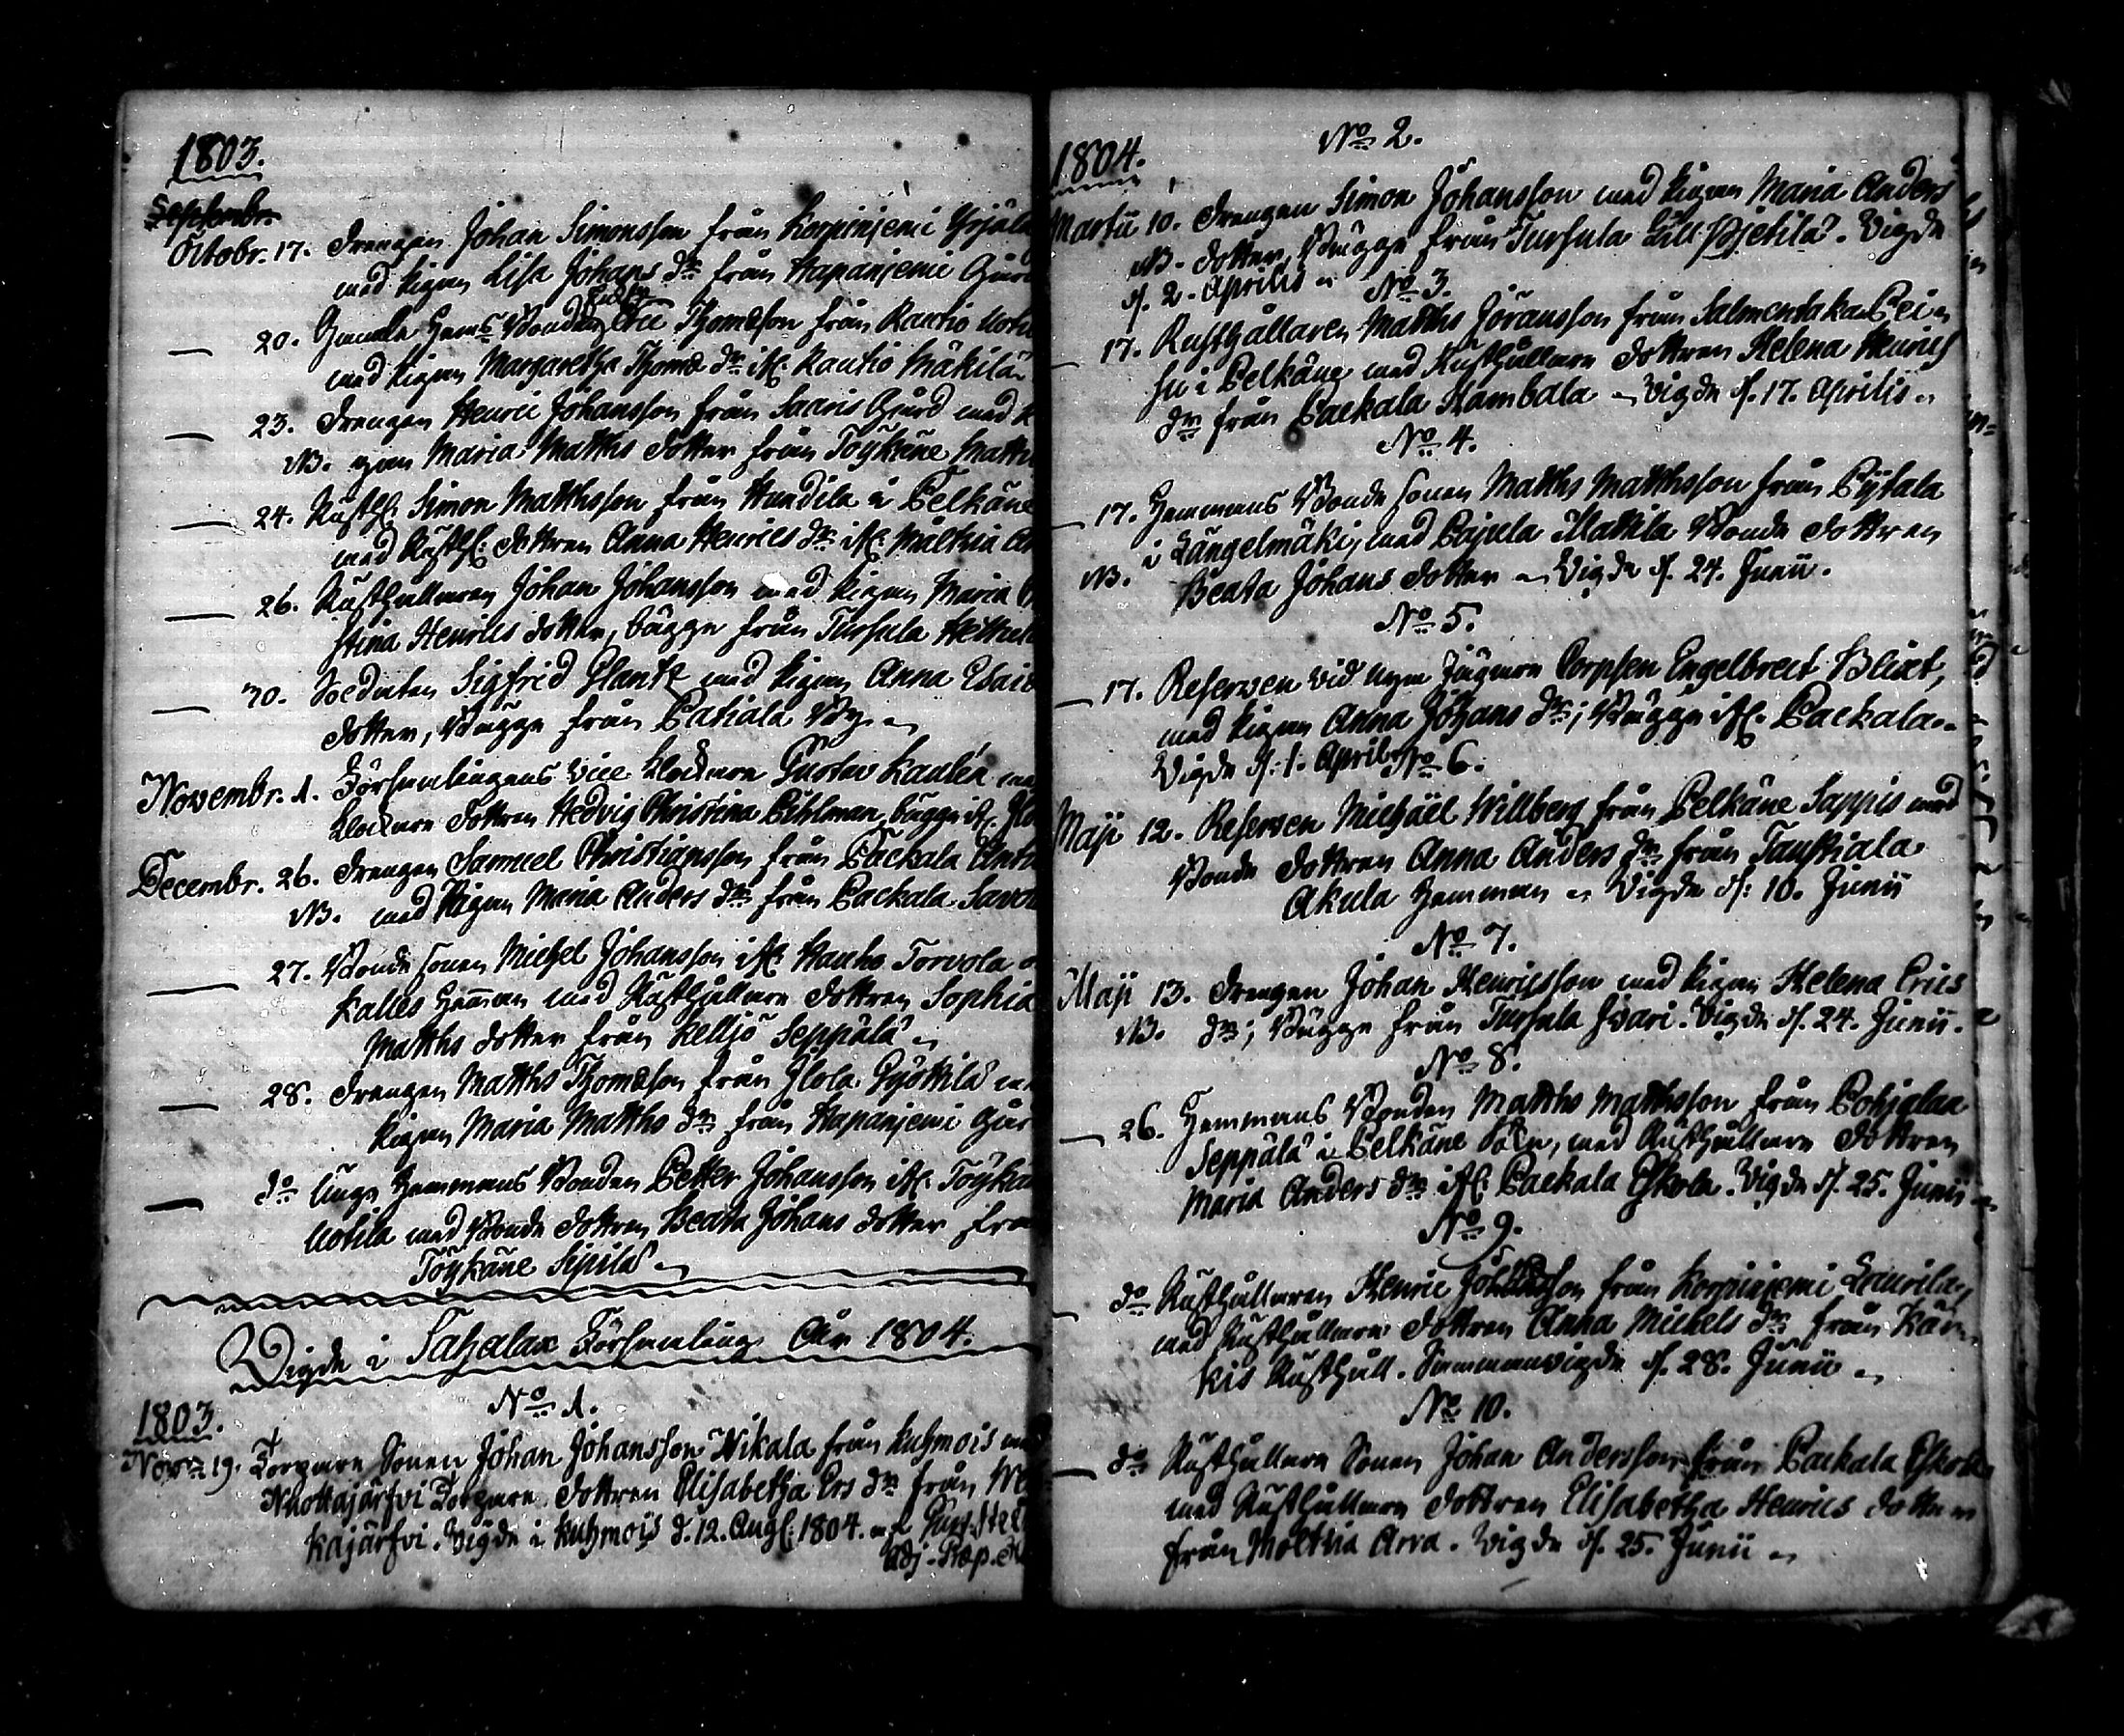 1803.
Septembr.
Octobr. 17. Drengen Johan Simonsson från Korpiniemi Yrjälä
med Pigan Lisa Johans dr från Haapaniemi Gård
20. Gamle Hems Bonden Eric Thomæson från Rautio
med Pigan Margaretha Thomæ dr ifr. Rautio Mäkilä
23. Drengen Henric Johansson från Saaris Gård med Pi
NB. gan Maria Matths dotter från Töykäne
24. Rusth. Simon Matthsson från Hundila i Pelkäne
med Rusth. dottren Anna Henrics dr ifr. Malthia
26. Rusthållaren Johan Johansson med Pigan Maria
stina Henrics dotter, bägge från Tursula
30. Soldaten Sigfrid Glantz med Pigan Anna Esai
dotter, Bägge från Patiala By
Novembr. 1. Församlingens Vice Klockare Gustav Kaulén
Klockare dottren Hedvig Christina Pihlman, bägge ifr.
Decembr. 26. Drengen Samuel Christiansson från Packala Antt
NB. med Pigan Maria Anders dr från Packala
27. Bonde sonen Michel Johansson ifr. Hauho Torvola
Kalles Hemman med Rusthållare dottren Sophia
Matths dotter från Kelljö Seppälä
28. Drengen Matths Thomæson från Ilola
Pigan Maria Matths dr från Haapaniemi Går
do Unge Hemmans Bonden Petter Johansson ifr.
Uotila med Bonde dottren Beata Johans dotter
Töykäne Sipilä
Vigde i Sahalax Församling År 1804.
No 1.
1803.
Novr. 19. Torpare Sonen Johan Johansson Wikala från Kuhmois
Torpare dottren Elisabetha Ers dr från
kajärfvi. Vigde i Kuhmois d. 12. Aug. 1804.
Adj.
1804.
No 2.
Martii 10. Drengen Simon Johansson med Pigan Maria Anders
NB. dotter, Bägge från Tursula Lill Pjetilä. Vigde
d. 2. Aprilis
No 3.
17. Rusthållaren Matths Jöransson från Salmentaka Pei
su i Pelkäne med Rusthållare dottren Helena Henrics
dr från Packala Kambala Vigde d. 17. Aprilis
No 4.
17. Hemmans Bonde sonen Matths Matthsson från Pytala
i Längelmäki, med Pajula Mattila Bonde dottren
NB. Beata Johans dotter Vigde d. 24. Junii.
No 5.
17. Reserven vid Jägare Corpsen Engelbrect Blixt,
med Pigan Anna Johans dr; Bägge ifr. Packala
Vigde d. 1. April
No 6.
Maji 12. Reserven Michäel Willberg från Pelkäne Sappis med
Bonde dottren Anna Anders dr från Taustiala
Akula Hemman Vigde d: 10. Junii
No 7.
Maji 13. Drengen Johan Henricsson med Pigan Helena Erics
NB. dr; Bägge från Tursula Isari. Vigde d. 24. Junii.
No 8.
26. Hemmans Bonden Matths Matthsson från Pohjalax
Seppälä i Pelkäne Sokn, med Rusthållare dottren
Maria Anders dr ifr. Packala Eskola. Vigde d. 25. Junii
No 9.
do Rusthållaren Henric Johansson från Korpiniemi Laurila,
med Rusthållare dottren Anna Michels dr från Kär
kis Rusthåll. Sammanvigde d. 28. Junii
No 10.
do Rusthållare Sonen Johan Andersson från Packala Eskola
med Rusthållare dottren Elisabetha Henrics dotter
från Malthia Arra. Vigde d. 25. Junii